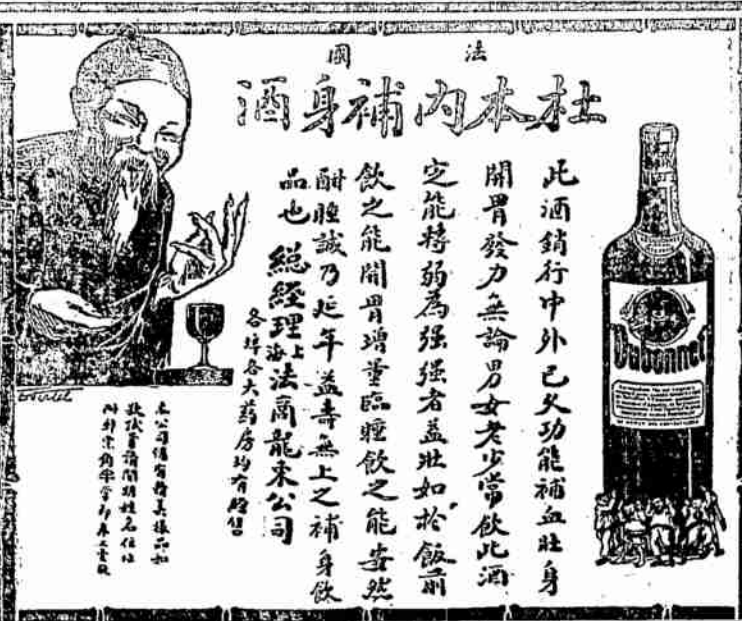 法國
杜本內補身酒
此酒銷行中外已久功能補血壯身
開胃發力無論男女老少常飲此酒
定能轉弱為强强者益壯如於飯前
飲之能開胃增量臨睡飲之能安然
酣睡誠乃延年益壽無上之補身飲
品也 総經理上海法商龍東公司
各埠各大葯房均有經售
本公司備有精美樣品如
欲試嘗請開明姓名住址
附郵票角半當即奉上壹瓶
Dubonnet